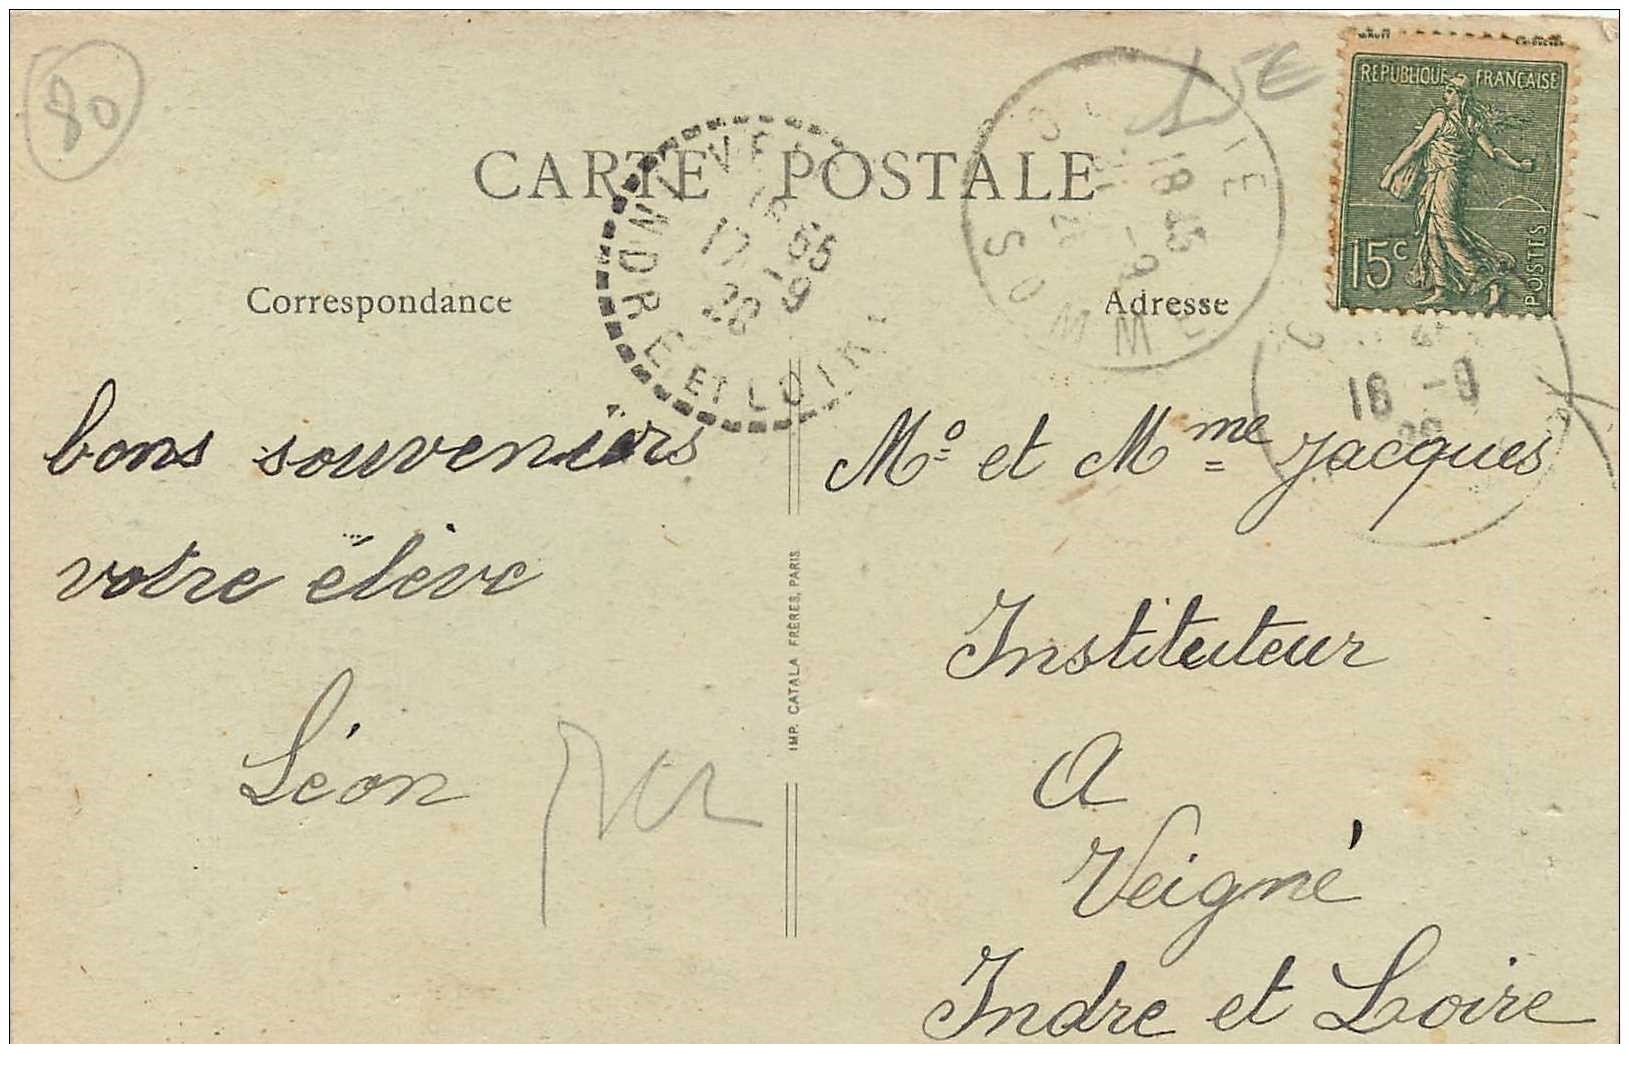 80
15€
RÉPUBLIQUE FRANÇAISE
15c
POSTES
CARTE POSTALE
INDRE ET LOIRE
17 -9
SOMME
18 45
16 -9
Correspondance
Adresse
bons souvenirs
votre élève
Léon
IMP. CATALA FRÈRES, PARIS
Mo et Mme Jacques
Instituteur
A
Veigné
Indre et Loire